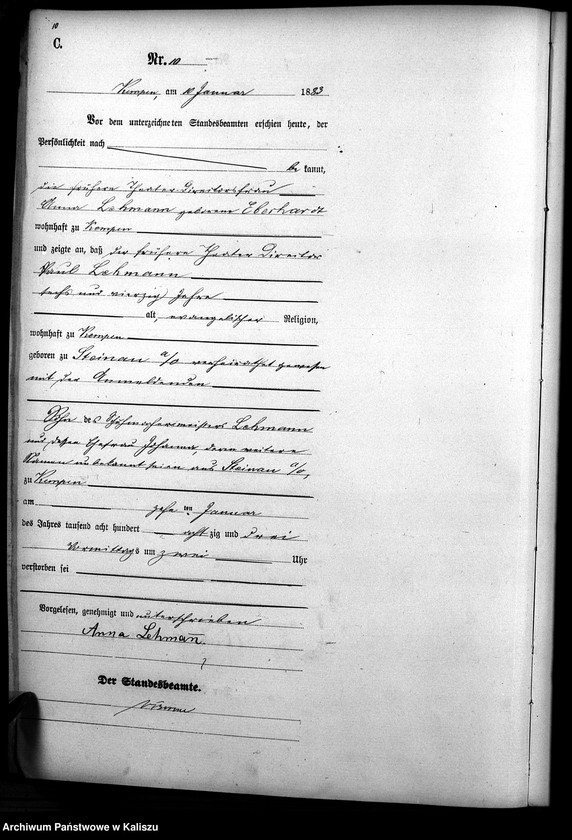 10
C.
Nr. 10
Kempen, am 10 Januar 1883
Vor dem unterzeichneten Standesbeamten erschien heute, der
Persönlichkeit nach
be kannt,
die frühere Theater-Directorsfrau
Anna Lehmann geborene Eberhardt
wohnhaft zu Kempen
und zeigte an, daß der frühere Theater Director
Paul Lehmann
sechs und vierzig Jahre
alt, evangelischer Religion,
wohnhaft zu Kempen
geboren zu Steinau a/O verheirathet gewesen
mit der Anmeldenden
Sohn des Schuhmachermeisters Lehmann
und dessen Ehefrau Johanna, deren weitere
Namen unbekannt seien aus Steinau a/O,
zu Kempen
am zehn ten Januar
des Jahres tausend acht hundert acht zig und drei
Vormittags um zwei Uhr
verstorben sei
Vorgelesen, genehmigt und unterschrieben
Anna Lehmann
Der Standesbeamte.
Archiwum Państwowe w Kaliszu